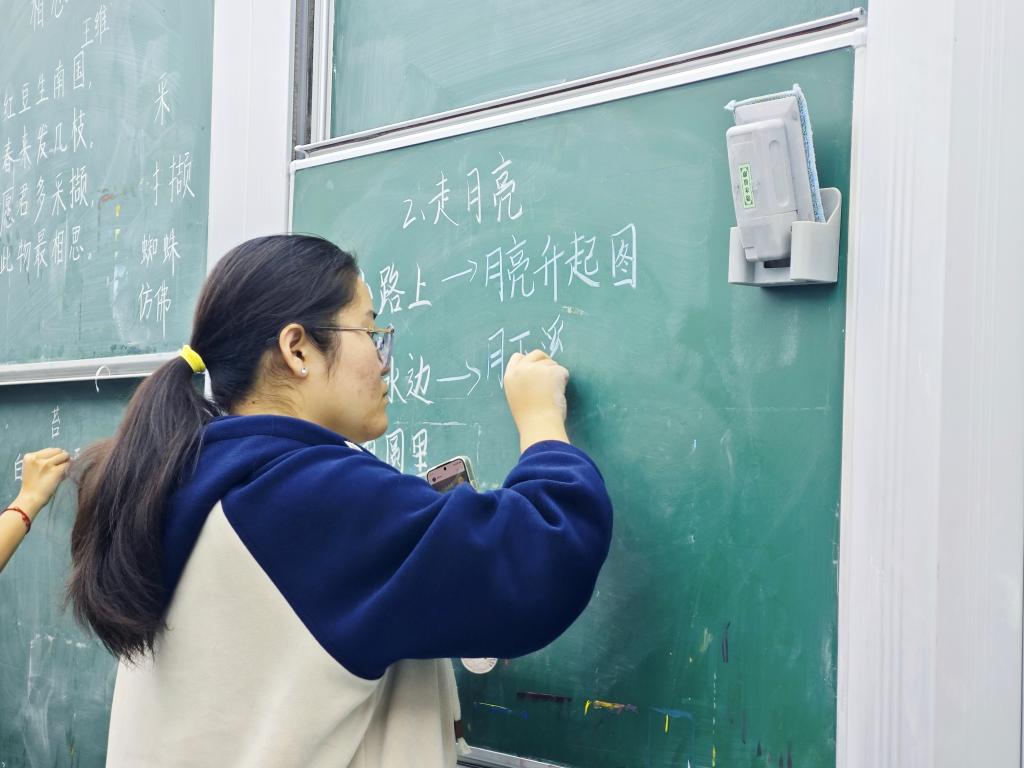 相思
王维
红豆生南国,
春来发几枝,
愿君多采撷,
此物最相思。
采
扌撷
蜘蛛
仿佛
苔
2、走月亮
路上→月亮升起图
水边→月下溪
里